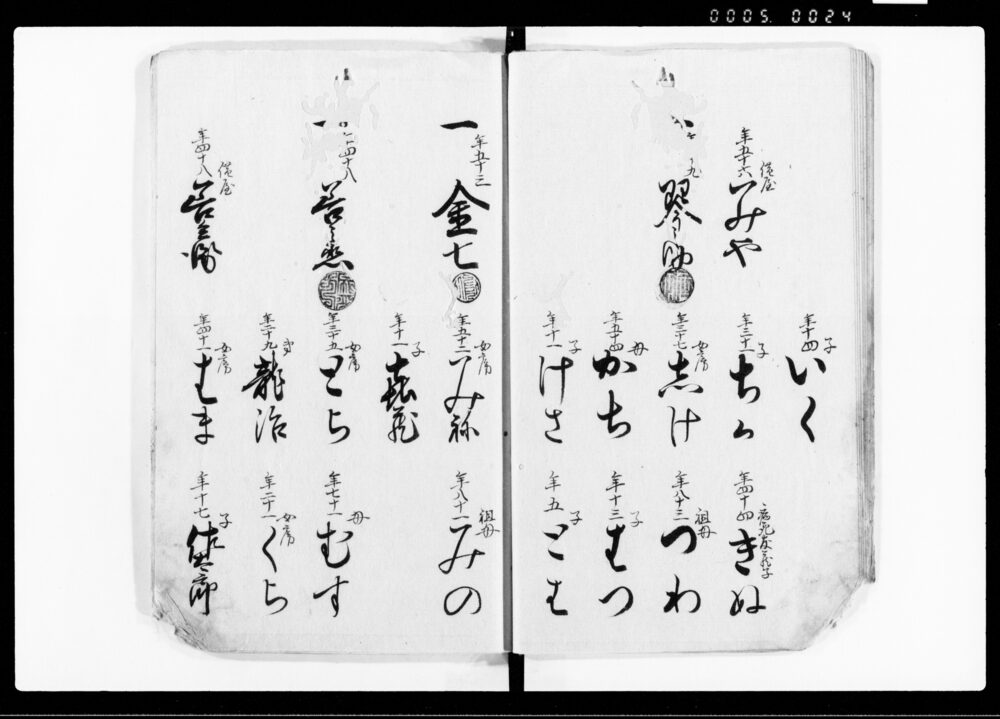 0005. 0024
子
年十四
いく
後屋
年五十六
みや
子
年三十一
ちか
年四十四
きぬ
女房
年三十七
志け
祖母
年八十三
つわ
母
年五十四
かち
子
年十三
はつ
子
年十一
けさ
子
年五
とは
一
年五十三
金七
女房
年五十二
みね
祖母
年八十一
みの
子
年十一
喜蔵
四十八
女房
年三十五
とら
母
年七十一
むす
弟
年二十九
龍治
女房
年二十一
くら
後屋
年四十八
女房
年四十一
はま
子
年十七